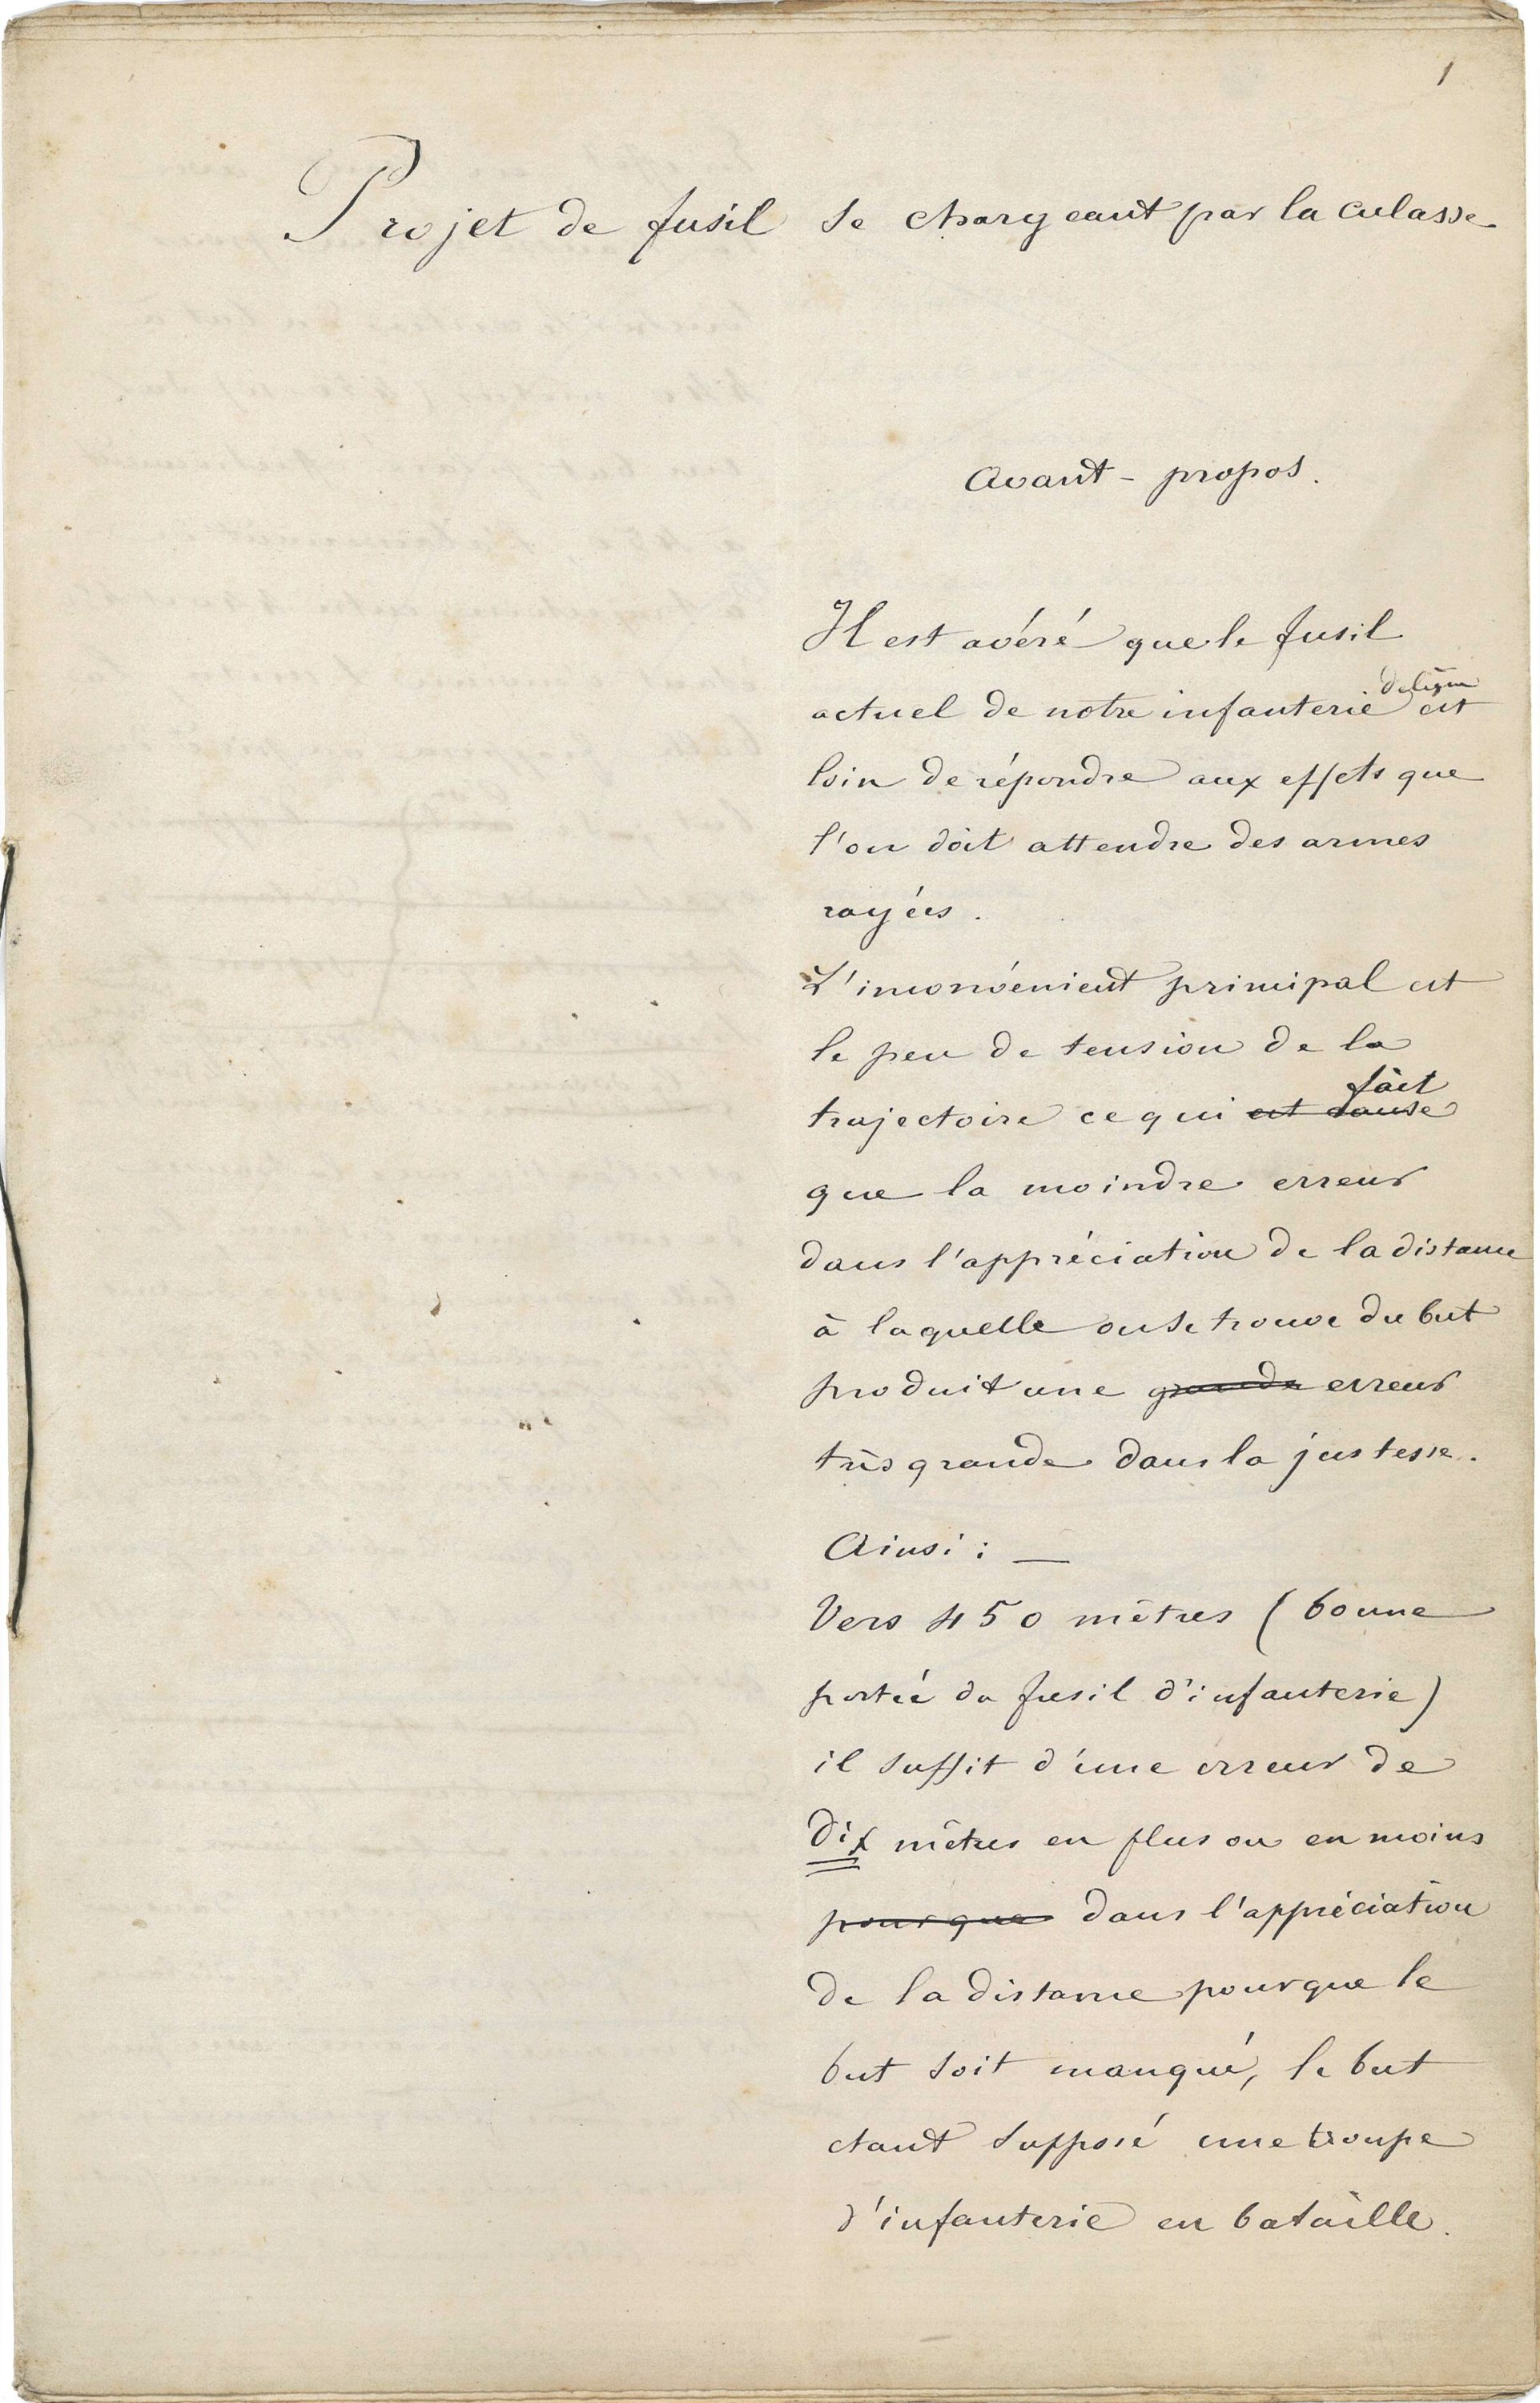 1
Projet de fusil se chargeant par la culasse
Avant-propos.
Il est avéré que le fusil
de ligne
actuel de notre infanterie est
loin de répondre aux effets que
l'on doit attendre des armes
rayées.
L'inconvénient principal est
le peu de tension de la
fait
trajectoire ce qui est cause
que la moindre erreur
dans l'appréciation de la distance
à laquelle on se trouve du but
produit une grande erreur
très grande dans la justesse.
Ainsi : —
Vers 450 mètres (bonne
portée du fusil d'infanterie)
il suffit d'une erreur de
dix mètres en plus ou en moins
pour que dans l'appréciation
de la distance pour que le
but soit manqué, le but
étant supposé une troupe
d'infanterie en bataille.